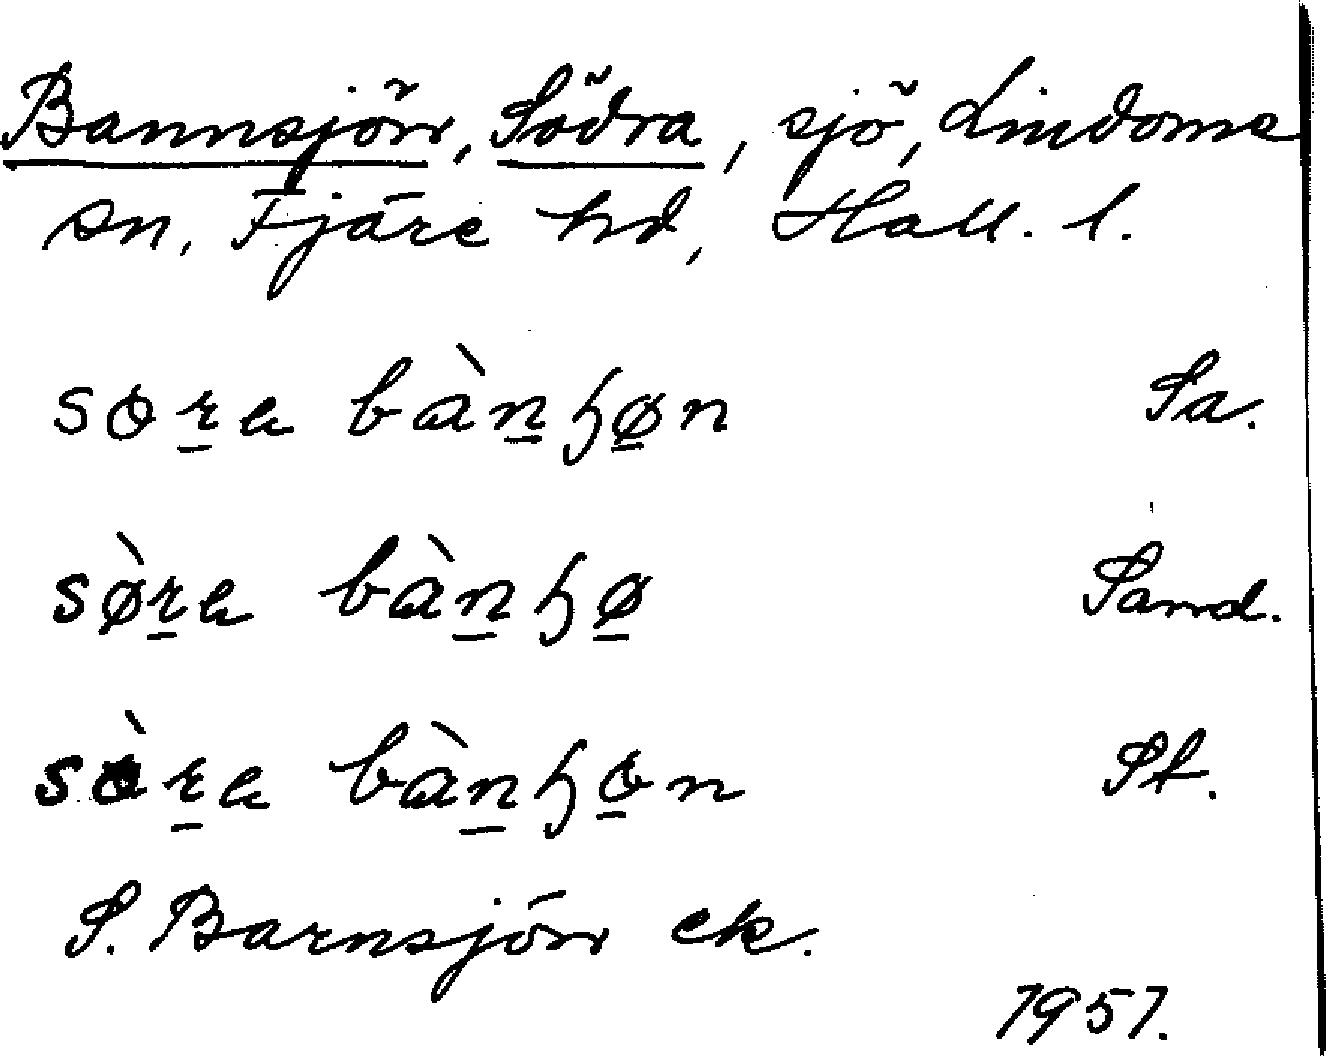 Bannsjön, Södra, sjö, Lindome
sn, Fjäre hd, Hall. l.
sora bànꞕøn Sa.
sø̀ra bànꞕø Sand.
sòra bànꞕon St.
S. Barnsjön ek.
1951.